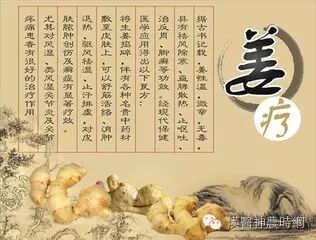 姜疗
据古书记载，姜性温，微辛，无毒，
具有祛风除寒、益脾散热、止呕吐、
治反胃、脚癣等功效。经现保健
医学应用得出以下复方：
将生姜捣碎，伴有各种名贵中药材
敷至皮肤上，可以舒筋活络、消肿
退热、驱风祛湿、止汗排虚，对皮
肤脓肿创伤及癣症有显著疗效。
尤其对风湿、类风湿关节炎及关节
疼痛患者有很好的治疗作用
漢醫神農時網